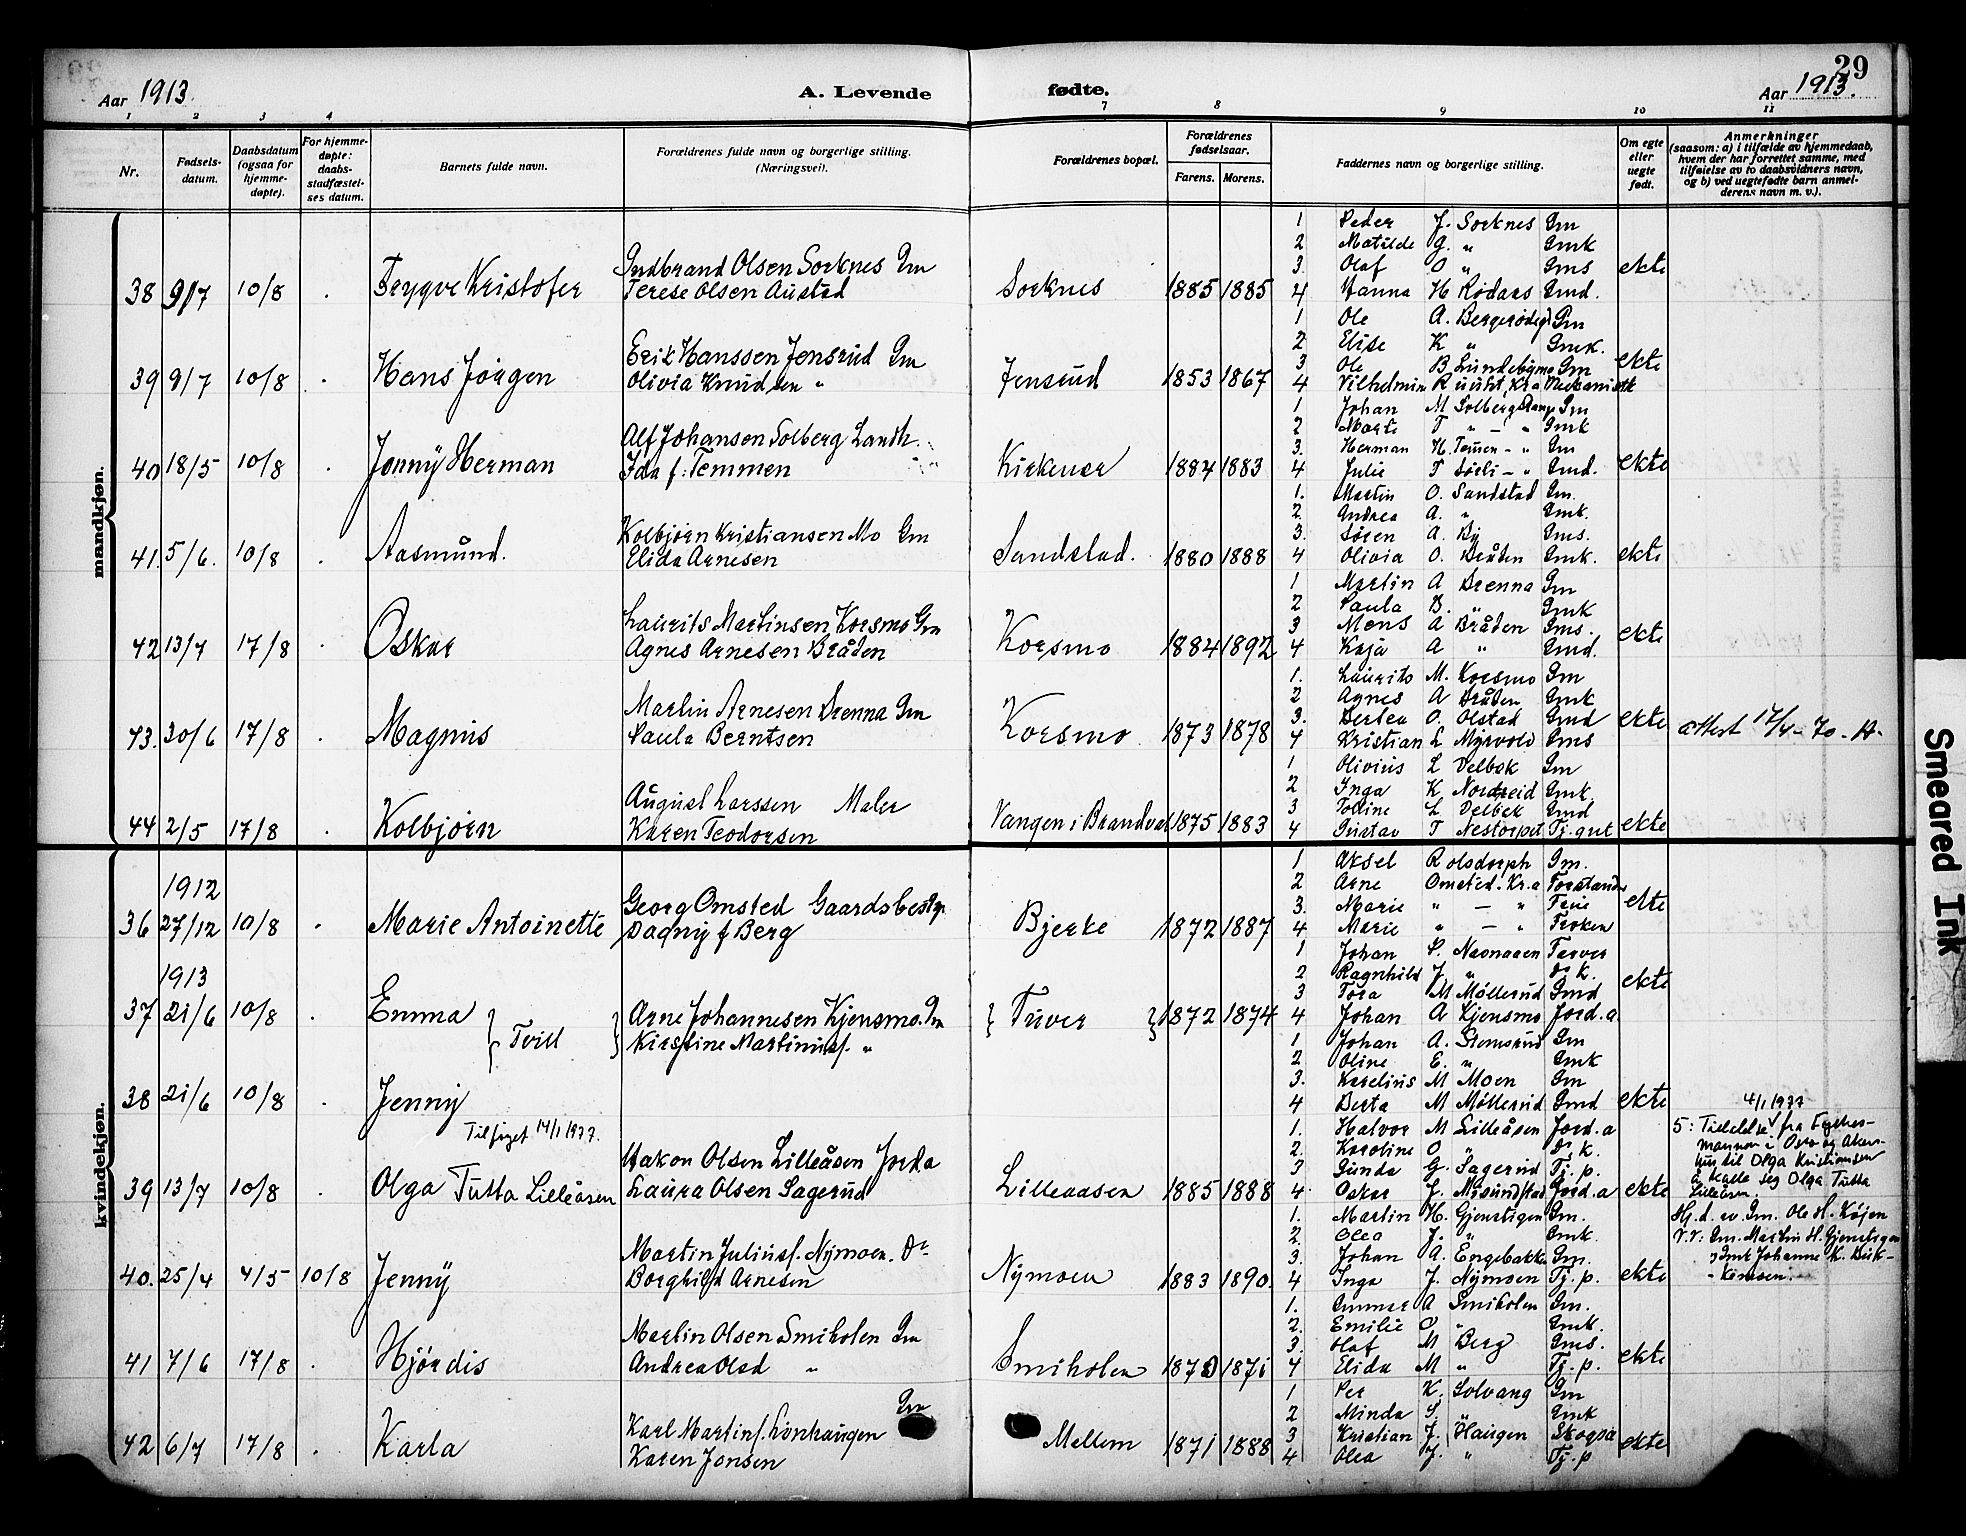 29
Aar 1913.
A. Levende
fødte.
Aar 1913.
1 2 3 4 7 8 9 10 11
Nr.
Fødsels-
datum.
Daabsdatum
(ogsaa for
hjemme-
døpte).
For hjemme-
døpte:
daabs-
stadfæstel-
ses datum.
Barnets fulde navn.
Forældrenes fulde navn og borgerlige stilling.
(Næringsvei).
Forældrenes bopæl.
Forældrenes
fødselsaar.
Farens. Morens.
Faddernes navn og borgerlige stilling.
Om egte
eller
uegte
født.
Anmerkninger
(saasom: a) i tilfælde av hjemmedaab,
hvem der har forrettet samme, med
tilføielse av to daabsvidners navn,
og b) ved uegtefødte barn anmel-
derens navn m. v.).
mandkjøn.
38 9/7 10/8 . Trygve Kristofer
Gudbrand Olsen Sorknes Gm
Terese Olsen Austad
Sorknes 1885 1885
1 Peder J. Sorknes Gm
2 Matilde G. " Gmk
3. Olaf O " Gms
4 Hanna H Rødaas Gmd.
ekte
39 9/7 10/8 . Hans Jørgen
Erik Hanssen Jensrud Gm
Olivia Knudsen "
Jensrud 1853 1867
1 Ole A. Bergerødegd Gm
2 Elise K " Gmk.
3 Ole B Lundebymo Gm
4 Vilhelmin Ruust, Kra
ekte
40 18/5 10/8 . Jonny Herman
Alf Johansen Solberg Landh.
Ida f. Temmen
Kirkenær 1884 1883
1 Johan M Solberg Gm
2 Marte T " - " Gmk
3. Herman H. Temen - " Gm
4 Julie T Sørli - " Gmd.
ekte
41. 5/6. 10/8 . Aasmund.
Kolbjørn Kristiansen Mo Gm
Elida Arnesen
Sandstad. 1880 1888
1. Martin O. Sandstad Gm.
2. Andrea A. " Gmk.
3. Søren A. By Gms.
4 Olivia O. Bråten Gmk.
ekte
42 13/7 17/8 . Oskar
Laurits Martinsen Korsmo Gm
Agnes Arnesen Bråten
Korsmo 1884 1892
1 Martin A Brenna Gm
2 Paula B. " Gmk
3 Mons A Bråten Gms.
4 Kaja A " Gmd.
ekte
43. 30/6 17/8 . Magnus
Martin Arnesen Brenna Gm
Paula Berntsen
Korsmo 1873 1878
1. Laurits M. Korsmo Gm
2 Agnes A Bråten Gmk
3. Bertea O. Olstad Gmd
4 Kristian L Myrvold Gms
ekte
attest 17/4-70. A.
44 2/5 17/8 . Kolbjørn
August Larssen Maler
Karen Teodorsen
Vangen i Brandval 1875 1883
1 Olivius L Velbek Gm
2 Inga K Nordreid Gmk.
3 Polline L Velbek Gmd
4 Gustav T Nestorpet Tj. gut
ekte
kvindekjøn.
1912
36 27/12 10/8 . Marie Antoinette
Georg Omsted Gaardsbestyr
Dagny f Berg
Bjerke 1872 1887
1. Aksel Rolsdorph Gm.
2 Arne Omsted. Kr.a Forstander
3. Marie " - " Frue
4 Marie " - " Frøken
ekte
1913
37 21/6 10/8 . Emma
} Tvill {
Arne Johannesen Kjensmo. Gm
Kirstine Martinius. "
} Tuver } 1872 1874
1 Johan P. Næsnaaen Farver
2 Ragnhild J. "
3 Tora M Møllerud Gmd
4 Johan A Kjensmo Jord.a
ekte
38 21/6 10/8 . Jenny
1 Johan A. Stomsrud Gm
2. Oline E. " Gmk
3. Karelius M Moen Gm
4 Berta M Møllerud Gmd
ekte
Tilføyet 14/1 1977.
39 13/7 10/8 . Olga Tutta Lilleåsen
Hakon Olsen Lilleåsen Jorda
Laura Olsen Sagerud
Lilleaasen 1885 1888
1. Halvor M Lilleåsen Jord.a
2. Karoline O "
3 Gunda G. Sagerud Tj. p.
4. Oskar J. Jord.a
ekte
4/1 1977
5: Tildelelse fra Fylkes-
mannen i Oslo og Akers-
hus til Olga Kristiansen
å kalle seg Olga Tutta
Lilleåsen.
40. 25/4 4/5 10/8 Jenny
Martin Julius. Nymoen. Do
Borghild Arnesen
Nymoen 1883 1890.
1. Martin H. Gjenstigen Gm.
2. Olea J. " Gmk.
3. Johan A. Engebakken Gm.
4 Inga J. Nymoen Tj. p.
ekte
Hj. d. av Gm. Ole H. Køjen
V.v: Gm. Martin H. Gjenstigen
Gmk Johanne K.
41 7/6 17/8 . Hjørdis
Martin Olsen Smiholen Gm
Andrea Olsd "
Smiholen 1870 1871
1. Gunnar A Smiholen Gm.
2. Emilie O " Gmk.
3. Olaf M Berg Gms.
4 Elida M " Tj. p.
ekte
42 6/7 17/8 . Karla
Gm
Karl Martins. Lønhaugen
Karen Jonsen
Mellem 1871 1888
1 Per K. Solvang Gm
2 Minda S. " Gmk
3 Kristian J. Haugen
4 Olea J. " Tj. p
ekte
Smeared Ink